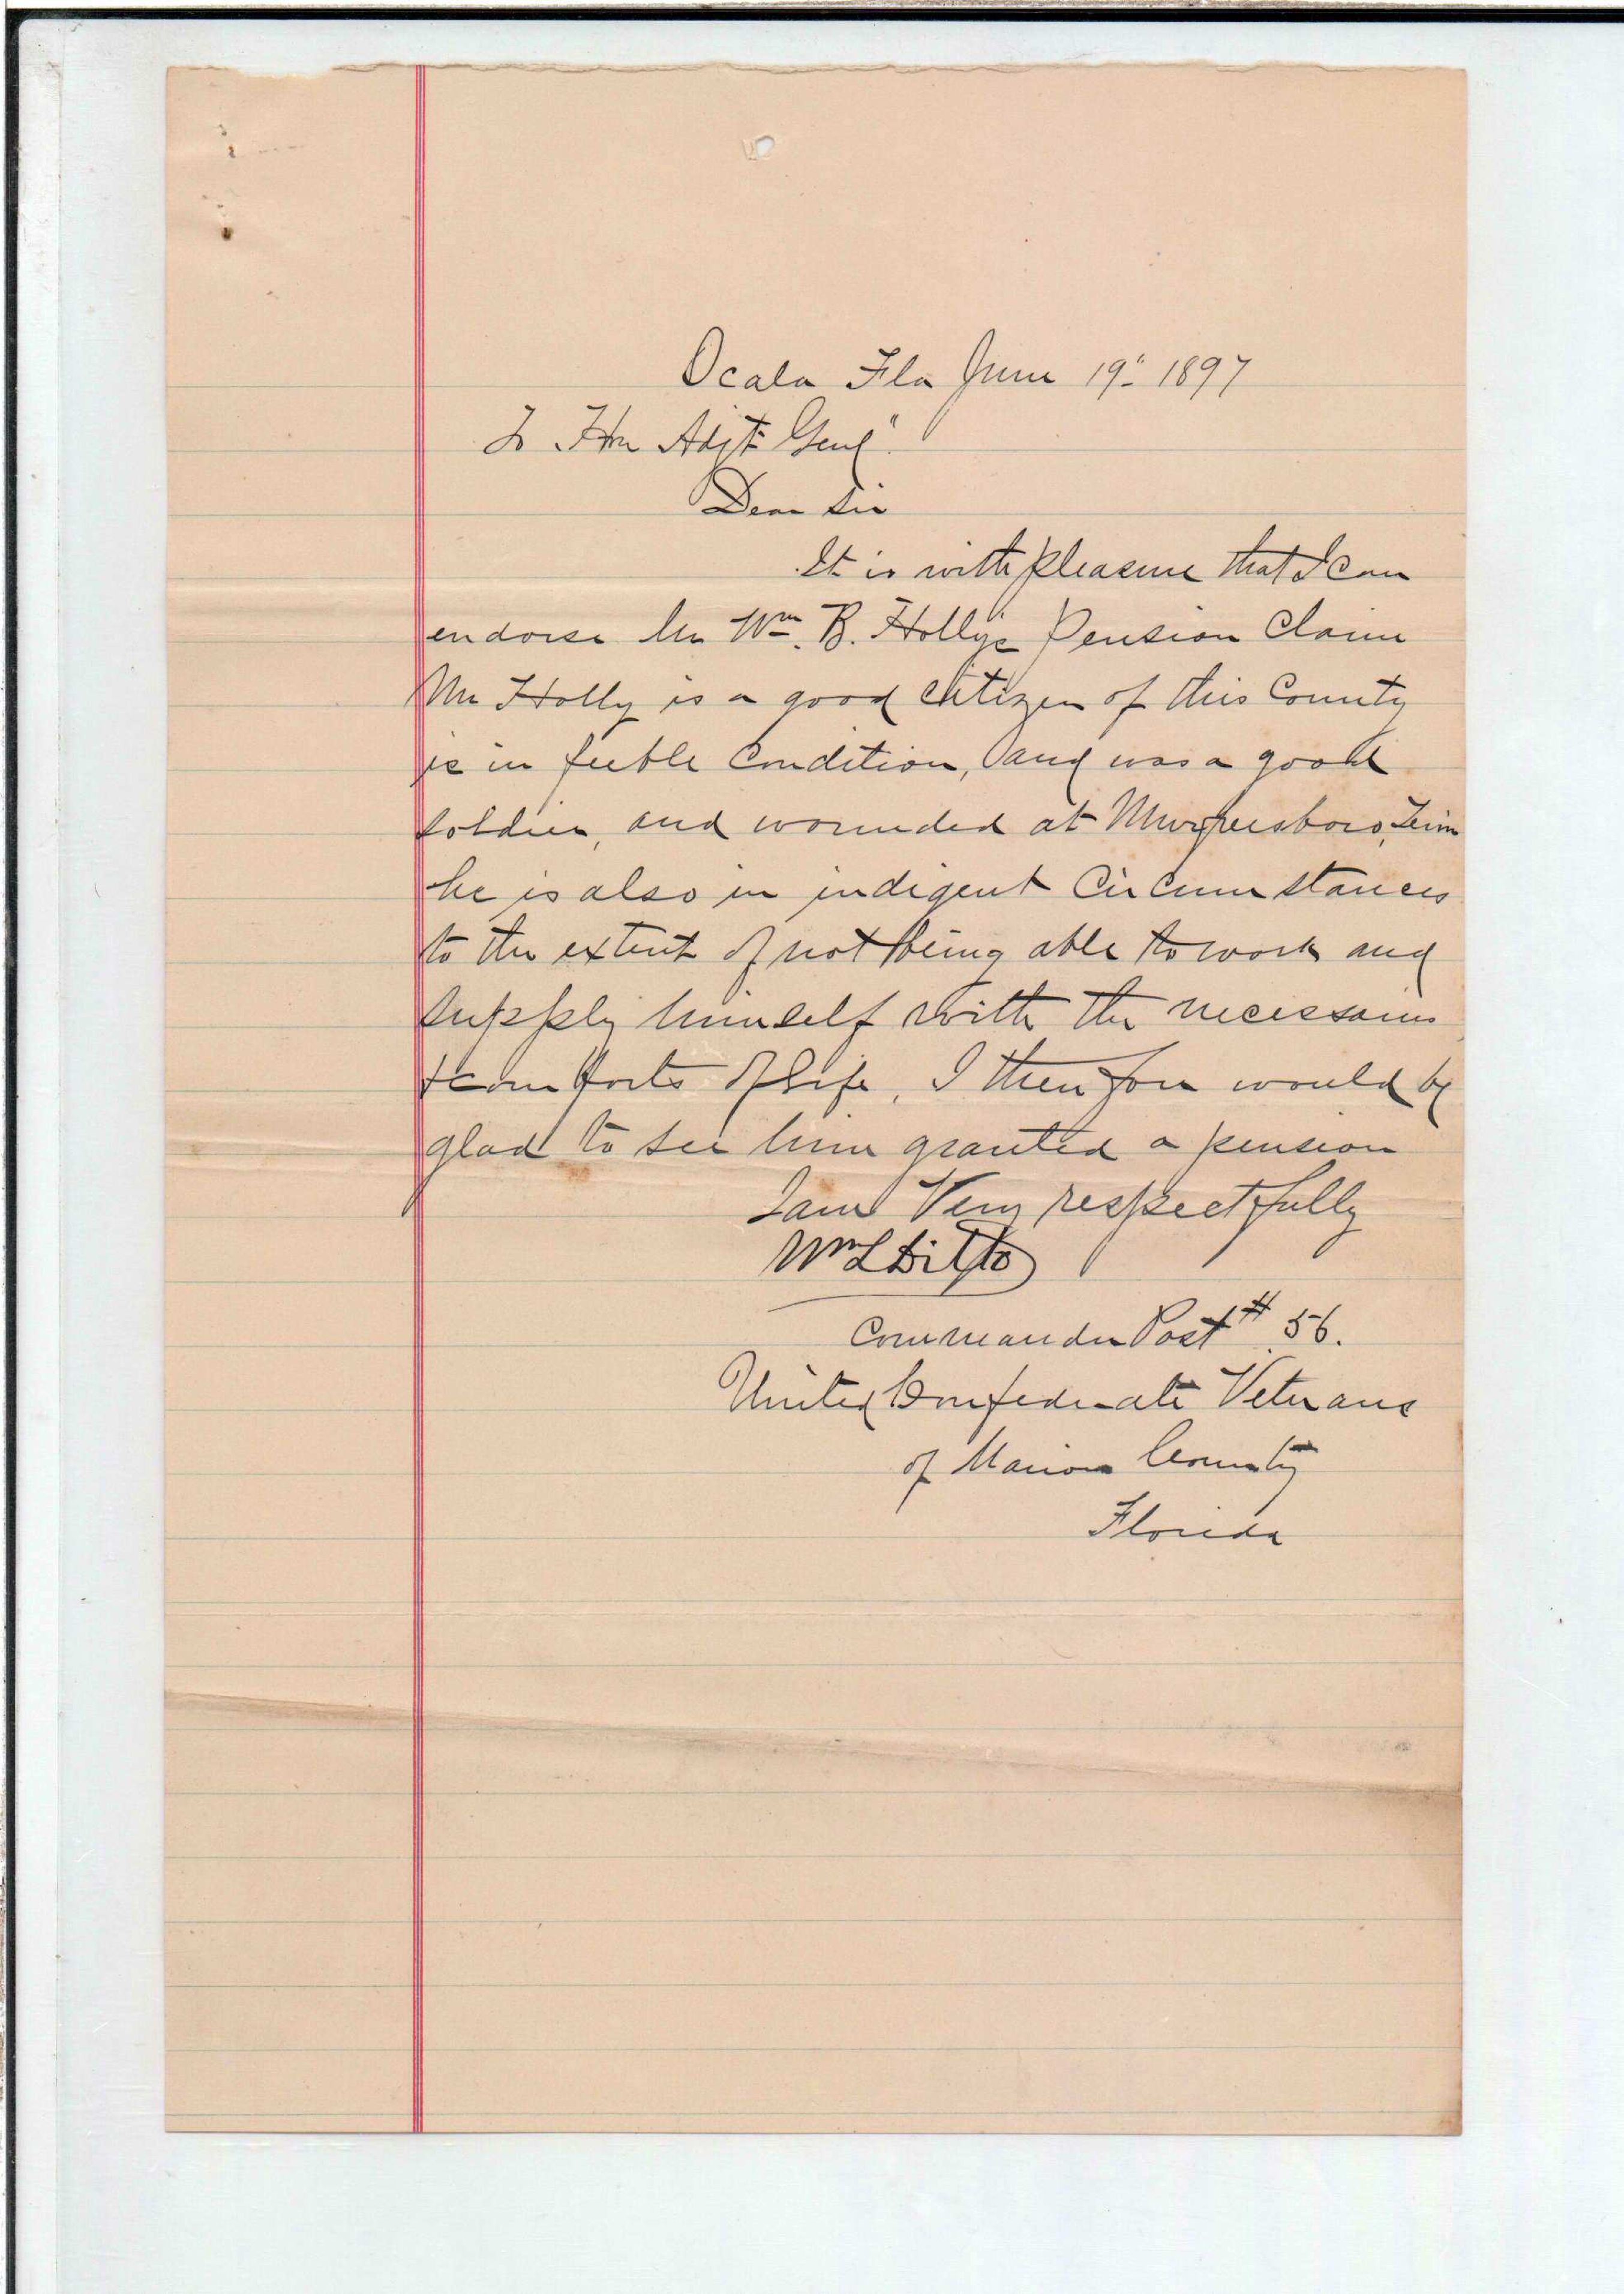 Ocala Fla June 19" 1897
To Hon Adjt Genl"
Dear Sir
It is with pleasure that I can
endorse Mr Wm. B. Holly's Pension Claim
Mr Holly is a good citizen of this County
is in feeble Condition, and was a good
soldier, and wounded at Murfreesboro, Tenn
he is also in indigent Circumstances
to the extent of not being able to work and
supply himself with the necessaries
& comforts of life, I therefore would be
glad to see him granted a pension
I am Very respectfully
Wm L Ditto
Commander Post # 56.
United Confederate Veterans
of Marion County
Florida